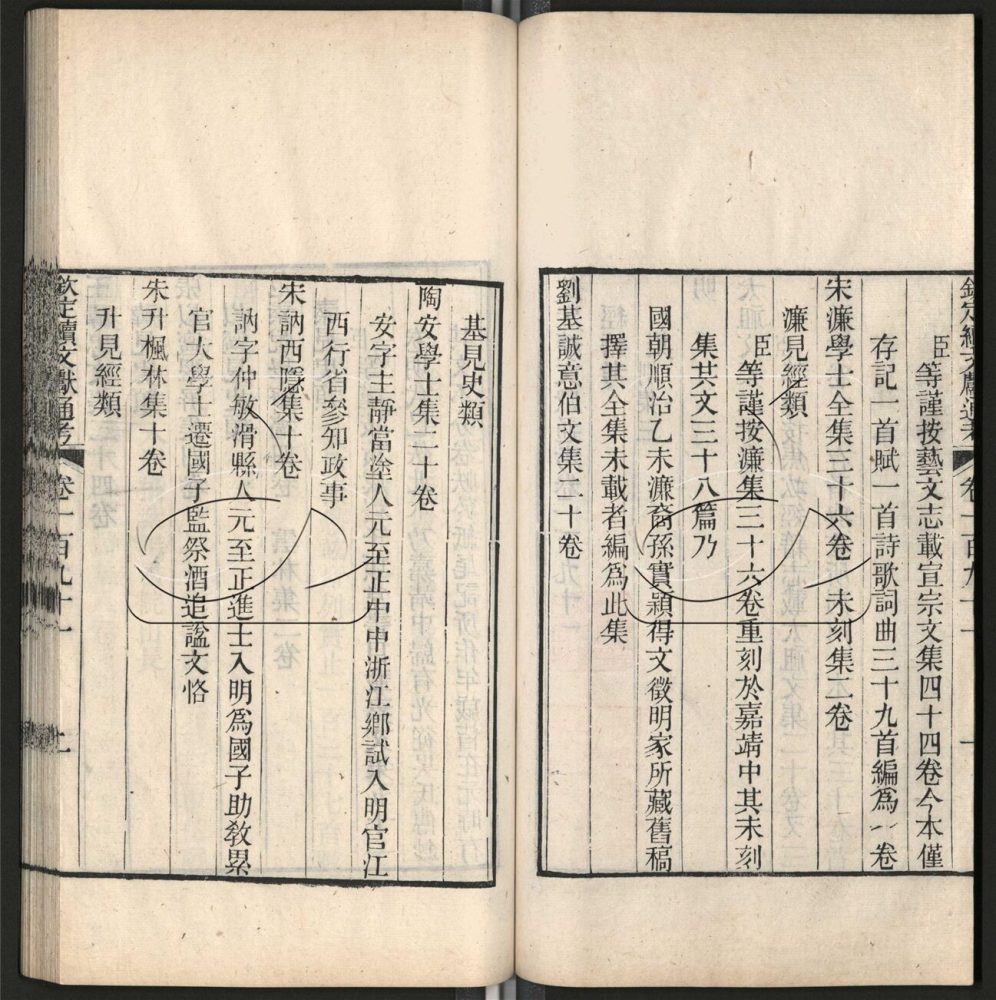 欽定續文獻通考 卷一百九十一 一
臣等謹按藝文志載宣宗文集四十四卷今本僅
存記一首賦一首詩歌詞曲三十九首編為一卷
宋濂學士全集三十六卷 未刻集二卷
濂見經類
臣等謹按濂集三十六卷重刻於嘉靖中其未刻
集其文三十八篇乃
國朝順治乙未濂裔孫實穎得文徵明家所藏舊稿
擇其全集未載者編為此集
劉基誠意伯文集二十卷
基見史類
陶安學士集二十卷
安字主靜當塗人元至正中中浙江鄉試入明官江
西行省參知政事
宋訥西隱集十卷
訥字仲敏滑縣人元至正進士入明為國子助教累
官大學士遷國子監祭酒追諡文恪
朱升楓林集十卷
升見經類
欽定續文獻通考 卷一百九十一 二